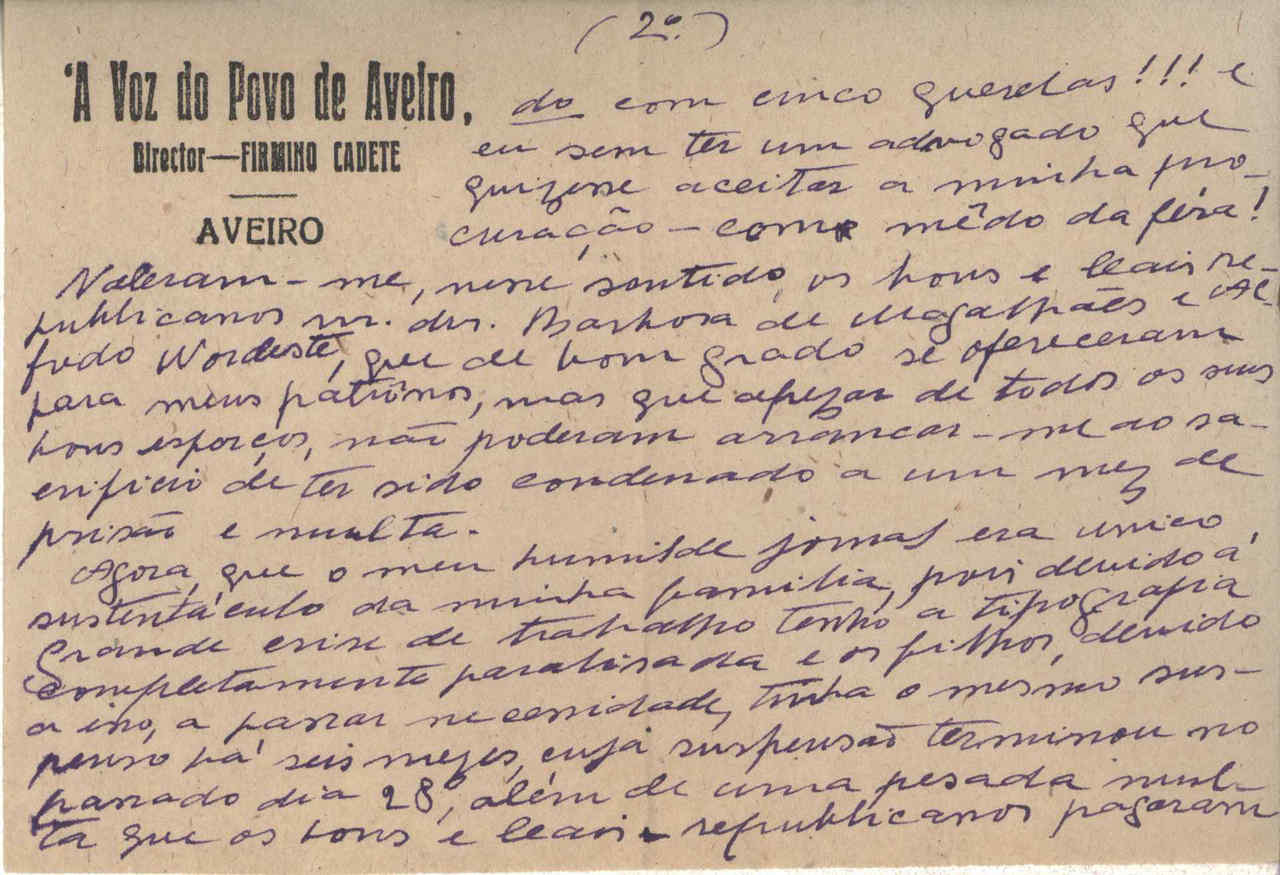 (2º.)
'A Voz do Povo de Aveiro,
Director—FIRMINO CADETE
AVEIRO
do com cinco querelas!!! e
eu sem ter um advogado que
quizesse aceitar a minha pro-
curação — com mêdo da féra!
Valeram-me, nesse sentido, os bons e leais re-
publicanos sr. drs. Barbosa de Magalhães e Al-
fredo Nordeste, que de bom grado se ofereceram
para meus patrônos, mas que apezar de todos os seus
bons esforços, não poderam arrancar-me ao sa-
crificio de ter sido condenado a um mez de
prisão e multa.
Agora, que o meu humilde jornal era unico
sustentáculo da minha familia, pois devido á
grande crise de trabalho tenho a tipografia
completamente paralisada e os filhos, devido
a isso, a passar necessidade, tinha o mesmo sus-
penso há seis mezes, cuja suspensão terminou no
passado dia 28, além de uma pesada mul-
ta que os bons e leais republicanos pagaram